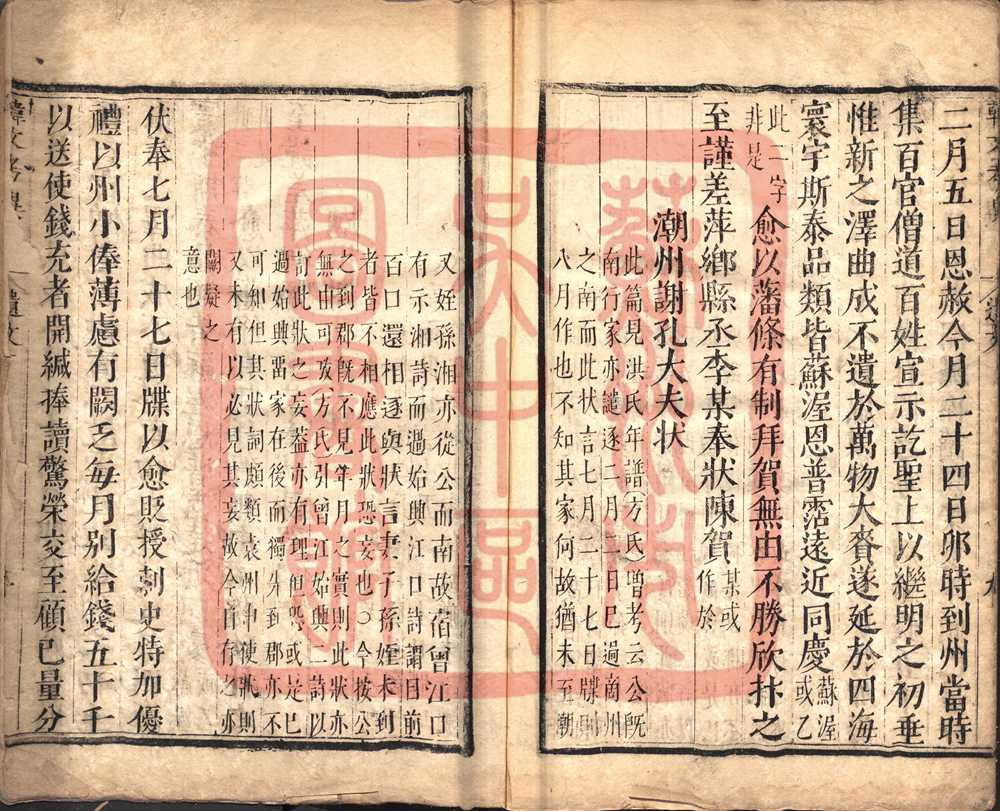 二月五日恩赦今月二十四日卯時到州當時
集百官僧道百姓宣示訖聖上以繼明之初垂
惟新之澤曲成不遺於萬物大賚遂延於四海
寰宇斯泰品類皆蘇渥恩普霑遠近同慶蘇渥或乙
此二字非是愈以藩條有制拜賀無由不勝欣抃之
至謹差萍鄉縣丞李某奉狀陳賀某或作於
潮州謝孔大夫狀
此篇見洪氏年譜方氏增考云公旣
南行家亦譴逐二月二日已過商州
之南而此状言七月二十七日牒則
八月作也不知其家何故猶未至潮
又姪孫湘亦從公而南故宿曾江口
有示湘詩而過始興江口詩謂目前
百口還相逐與狀言妻子孫姪未到
者皆不相應此狀恐妄也○今按公
之到郡旣不見年月之實則此狀亦
無由可攷方氏引曾江始興二詩以
訂此狀之妄葢亦有理但恐或是已
過始興畱家在後而獨先到郡亦不
可知但其狀詞頗類袁州申使狀則
又未有以必見其妄故今且存之亦
闕疑之
意也
伏奉七月二十七日牒以愈貶授刺史特加優
禮以州小俸薄慮有闕乏每月别給錢五十千
以送使錢充者開緘捧讀驚榮交至顧已量分
韓文考異
遺文